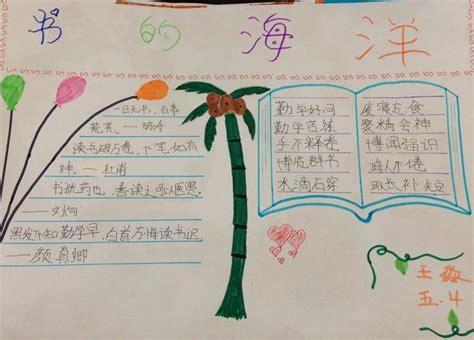 书的海洋
一日无书,百事
荒芜。——陈寿
读书破万卷,下笔如有
神。——杜甫
书犹药也,善读之可以医愚
——刘向
黑发不知勤学早,白首方悔读书迟
——颜真卿
勤学好问
勤学苦练
手不释卷
博览群书
水滴石穿
废寝忘食
聚精会神
博闻强识
诲人不倦
取长补短
王
五.4